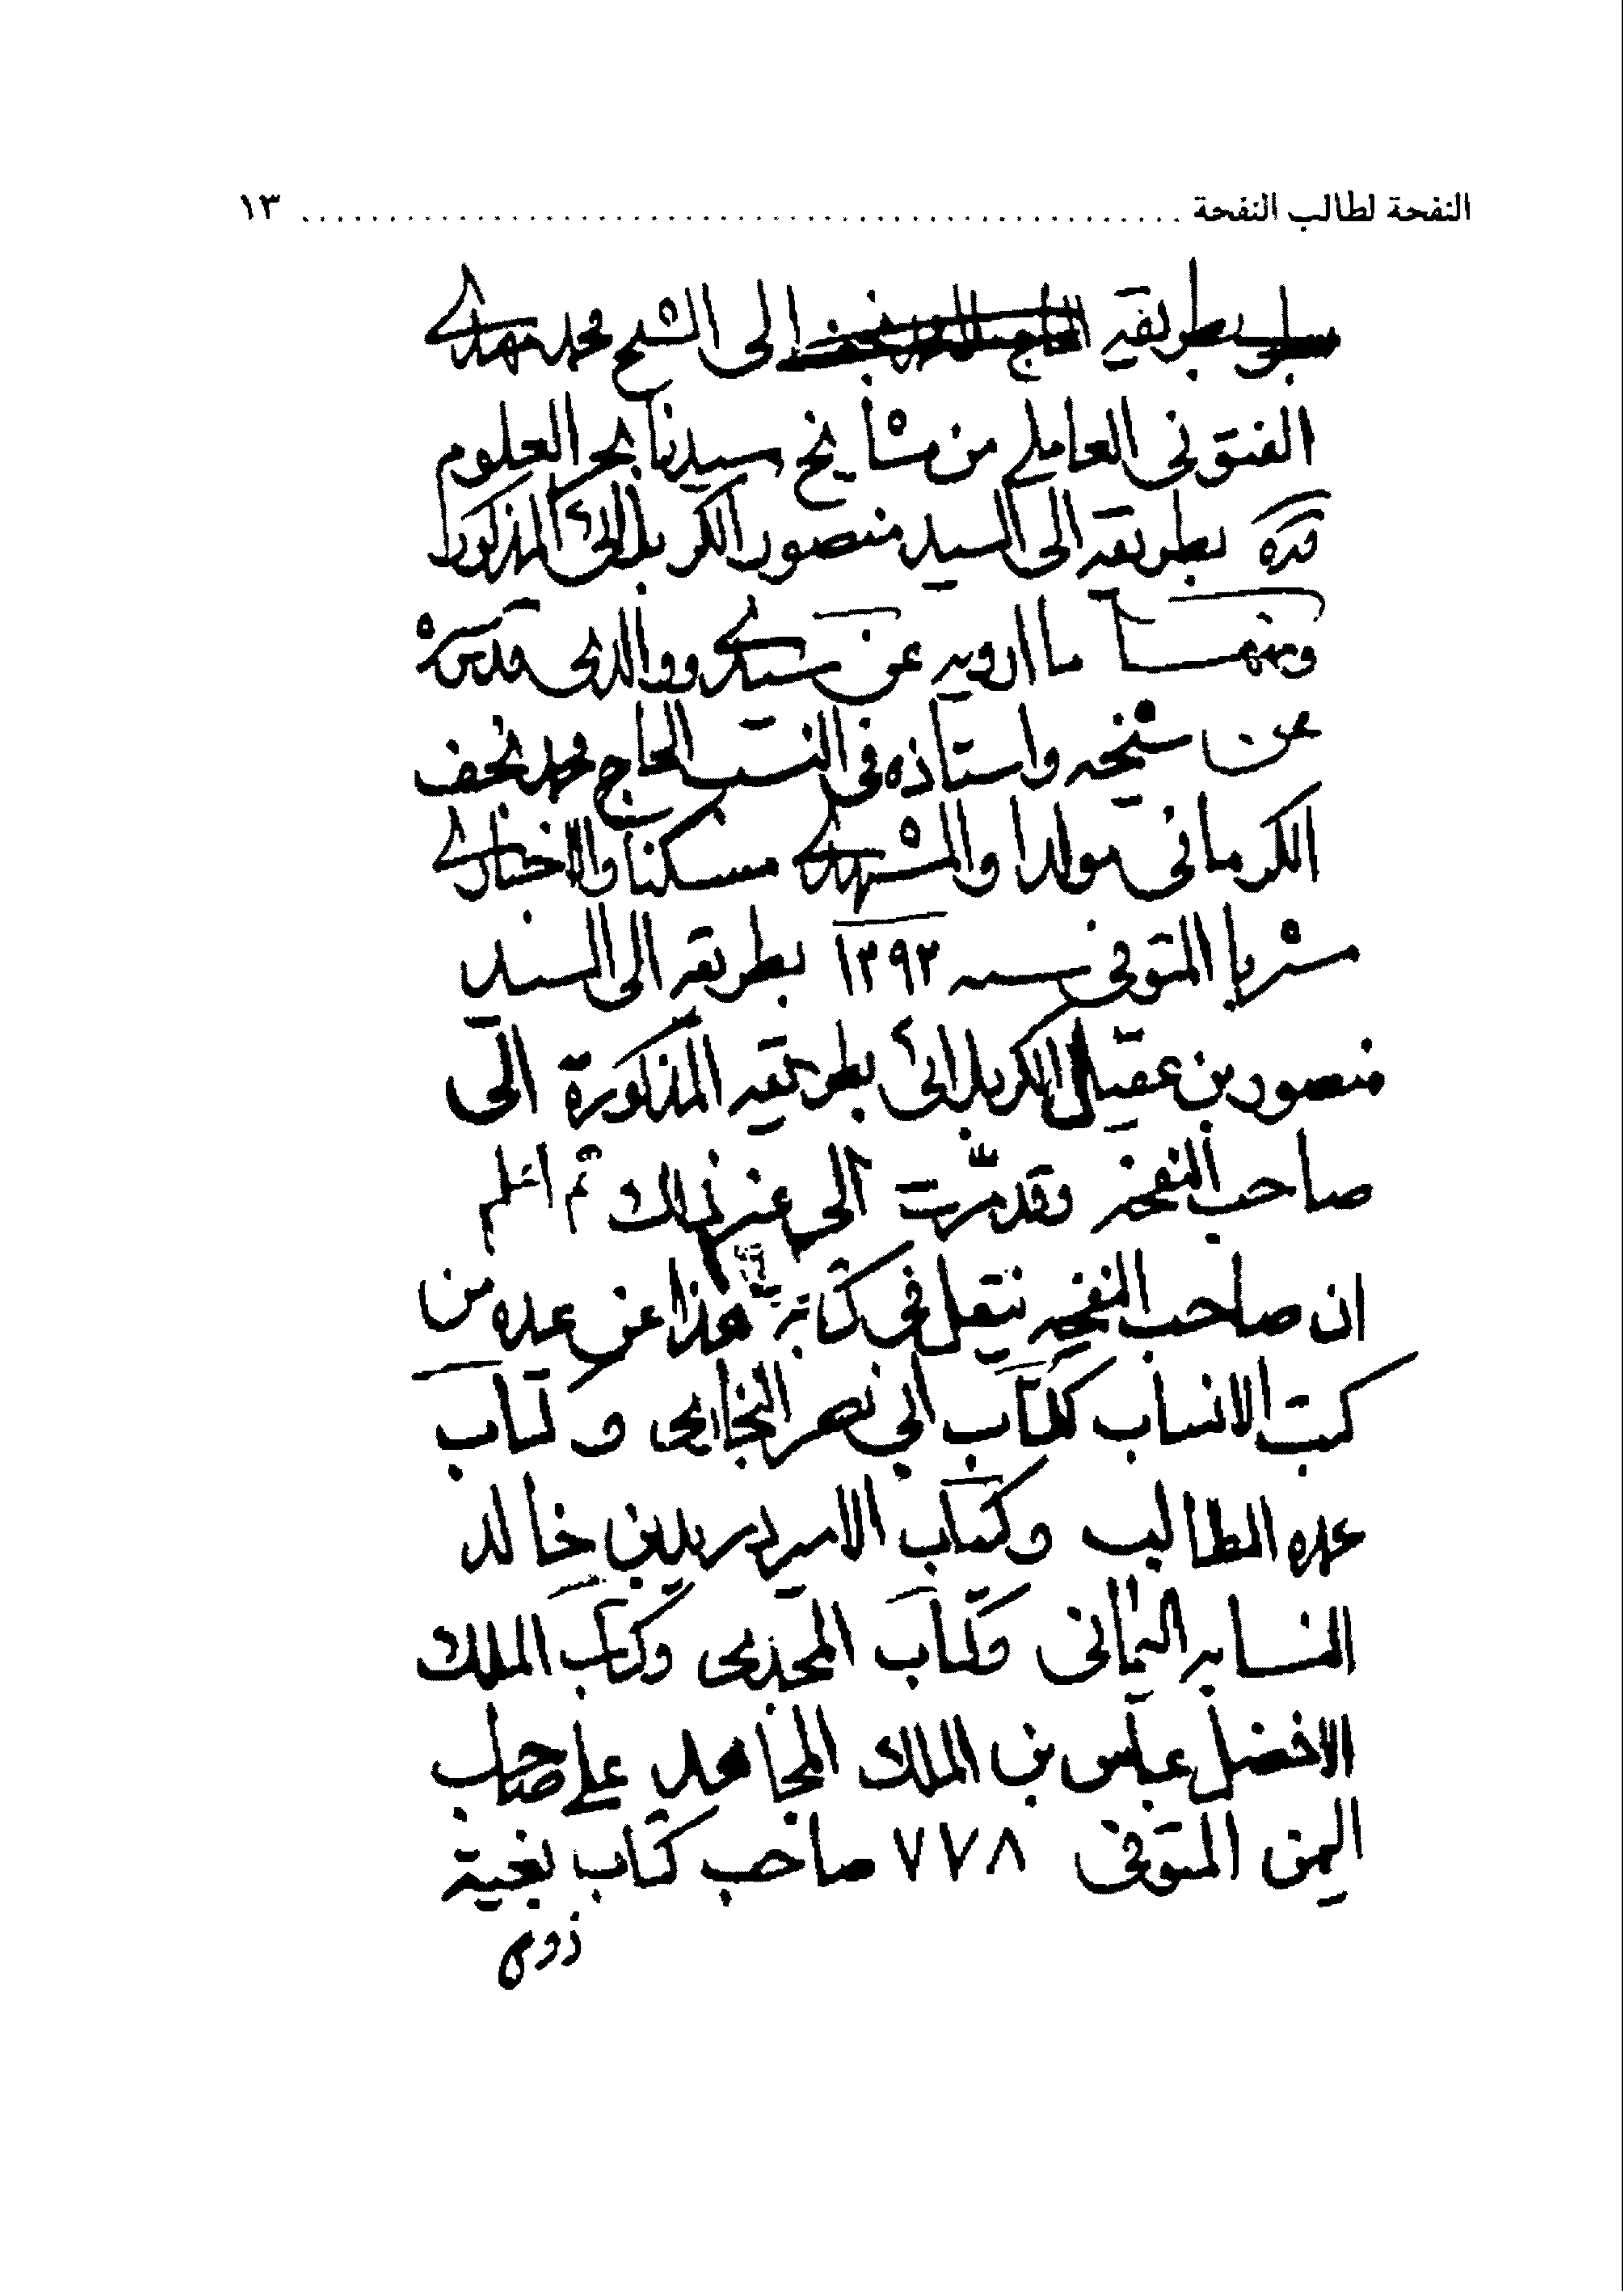 النفحة لطالب النفحة ........ ١٣
بطريقه الى الشيخ محمد مهدي
الفتوني العاملي من مشايخ سيدنا بحر العلوم
قده بطريقه الى السيد منصور الكربلائي المذكور
ومنها ما ارويه عن سيدي ووالدي قدس سره
عن شيخه واستاذه في النسب الحاج محمد نجف
الكرماني مولدا والمشهدي مسكنا والاخباري
مشربا المتوفى سنه ١٣٩٣ بطريقه الى السيد
منصور بن عقيل الكربلائي بطريقيه المذكورة الى
صاحب النفحه وقد مرت الى غير ذلك ثم اعلم
ان صاحب النفحه ينقل في كتابه هذا عن عده من
كتب الانساب ككتاب ابي نصر البخاري و كتاب
عمده الطالب وكتاب الامير بدر الدين خالد
النسابه اليماني وكتاب المجدي وكتاب الملك
الافضل عباس بن الملك المجاهد علي صاحب
اليمن المتوفى ٧٧٨ صاحب كتاب بغية
ذوى